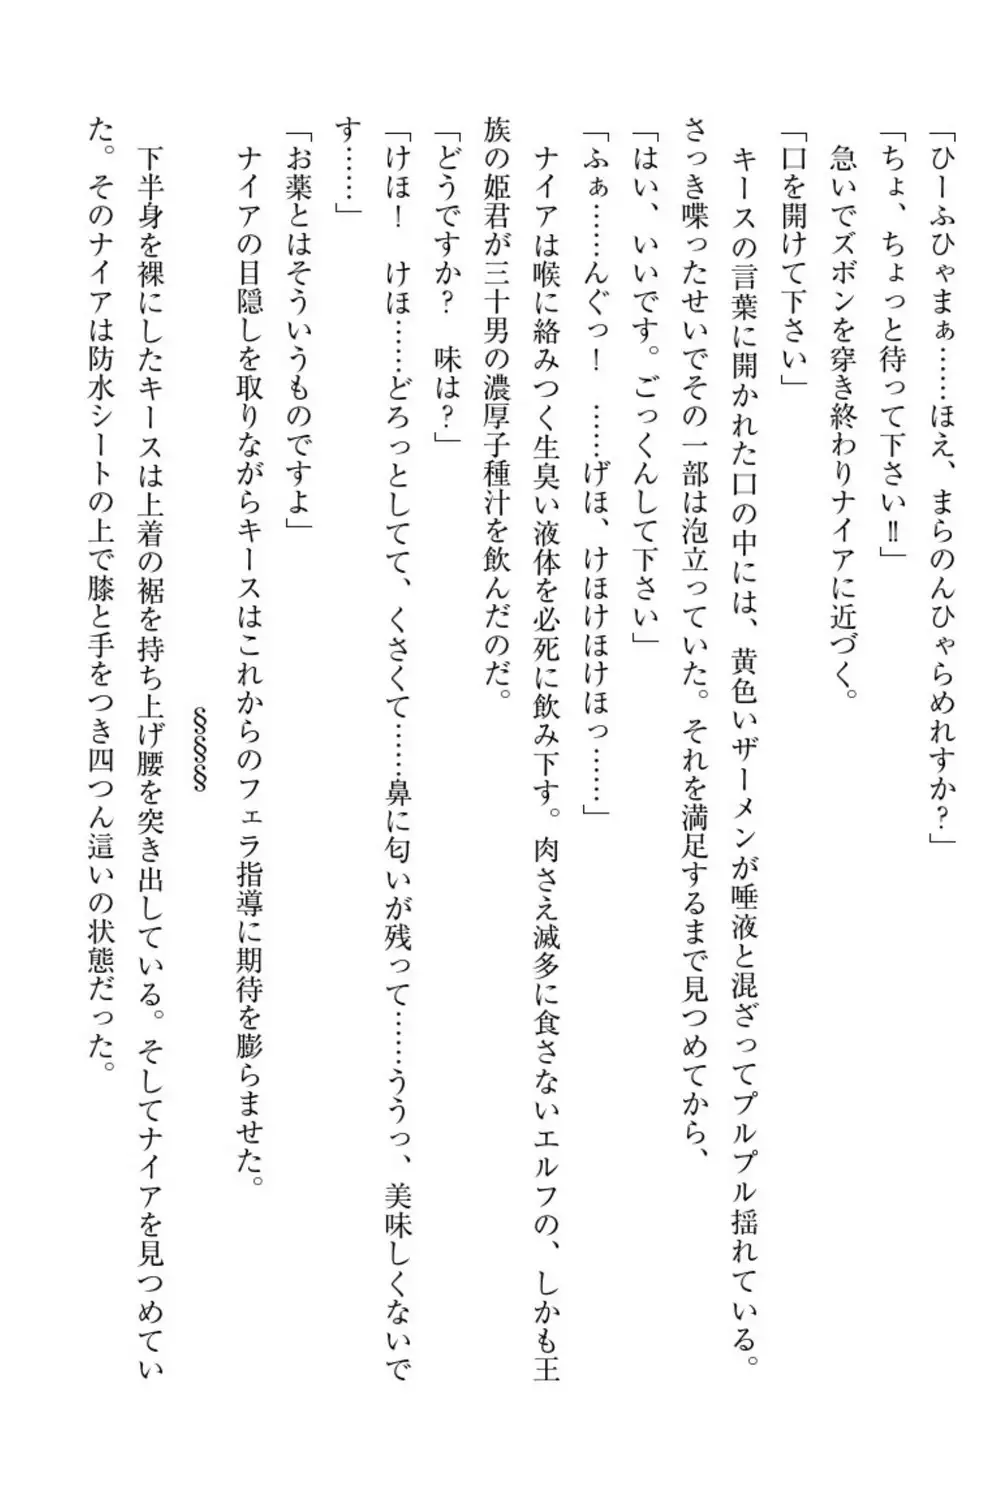 「ひーふひゃまぁ……ほえ、まらのんひゃらめれすか？」
「ちょ、ちょっと待って下さい‼」
急いでズボンを穿き終わりナイアに近づく。
「口を開けて下さい」
キースの言葉に開かれた口の中には、黄色いザーメンが唾液と混ざってプルプル揺れている。
さっき喋ったせいでその一部は泡立っていた。それを満足するまで見つめてから、
「はい、いいです。ごっくんして下さい」
「ふぁ……んぐっ！　……げほ、けほけほけほっ……」
ナイアは喉に絡みつく生臭い液体を必死に飲み下す。肉さえ滅多に食さないエルフの、しかも王
族の姫君が三十男の濃厚子種汁を飲んだのだ。
「どうですか？　味は？」
「けほ！　けほ……どろっとしてて、くさくて……鼻に匂いが残って……ううっ、美味しくないで
す……」
「お薬とはそういうものですよ」
ナイアの目隠しを取りながらキースはこれからのフェラ指導に期待を膨らませた。
§§§§
下半身を裸にしたキースは上着の裾を持ち上げ腰を突き出している。そしてナイアを見つめてい
た。そのナイアは防水シートの上で膝と手をつき四つん這いの状態だった。